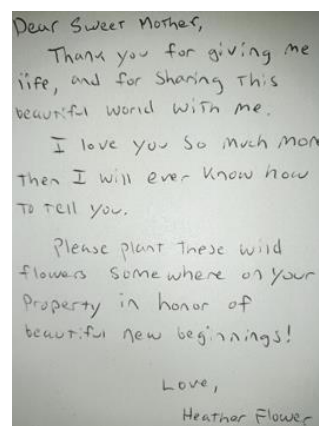 Dear Sweet Mother,
Thank you for giving me
life, and for sharing this
beautiful world with me.
I love you so much mom
Then I will ever know how
to tell you.
Please plant these wild
flowers somewhere on your
property in honor of
beautiful new beginnings!
Love,
Heather Flower